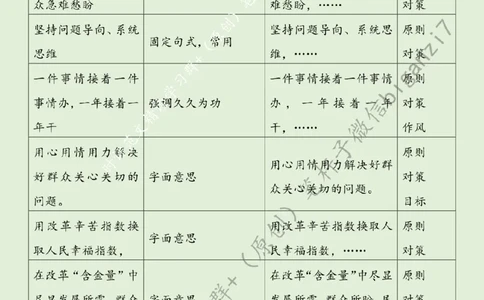 众急难愁盼 难愁盼，…… 对策
坚持问题导向、系统 坚持问题导向、系统 原则
固定句式，常用
思维 思维，…… 对策
一件事情接着一件 一件事情接着一件事情 原则
事情办，一年接着一 强调久久为功 办，一年接着一年 对策
年干 干，…… 作风
用心用情用力解决 原则
用心用情用力解决好群
好群众关心关切的 字面意思 对策
众关心关切的问题。
问题。 目标
用改革辛苦指数换 用改革辛苦指数换取人 原则
字面意思
取人民幸福指数， 民幸福指数，…… 对策
在改革“含金量”中 在改革“含金量”中尽显 原则